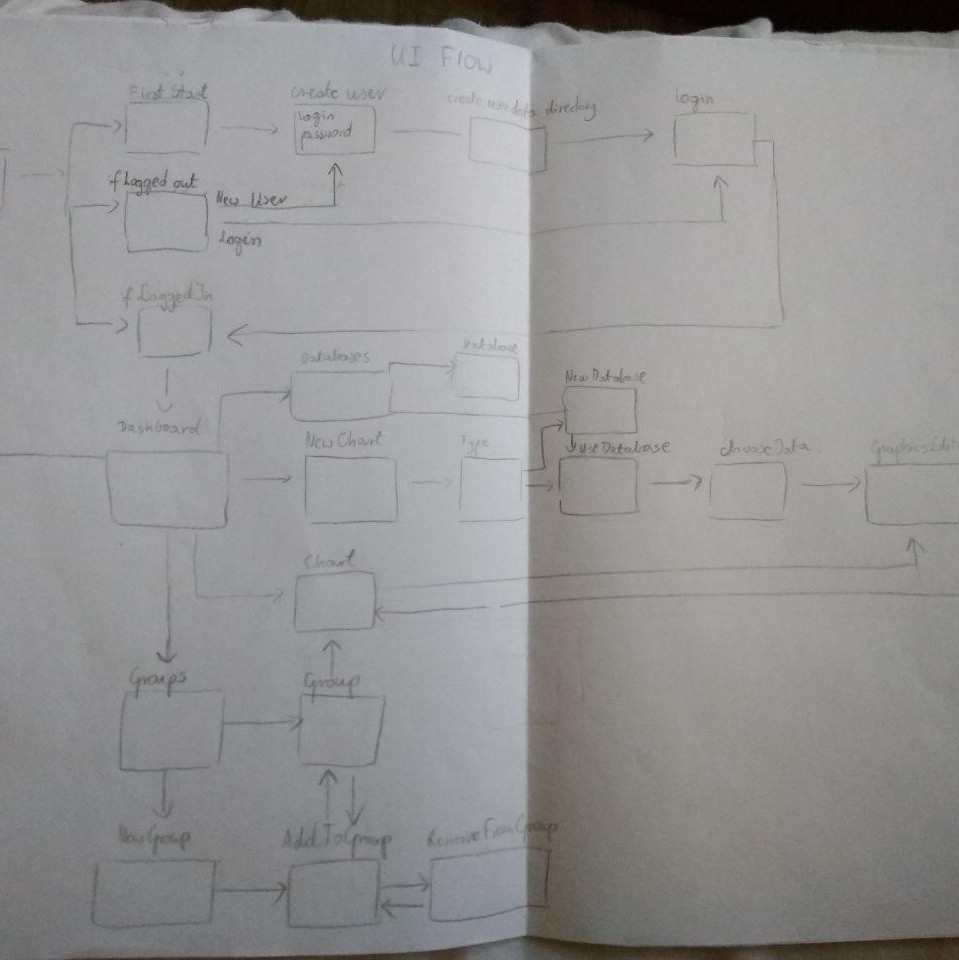 UI Flow
First Start
create user
create user data directory
login
login
password
if Logged out
New User
Login
if Logged In
Databases
Database
New Database
Dashboard
New Chart
Type
Use Database
choose Data
Graphics Edit
Chart
Groups
Group
New Group
Add To Group
Remove From Group